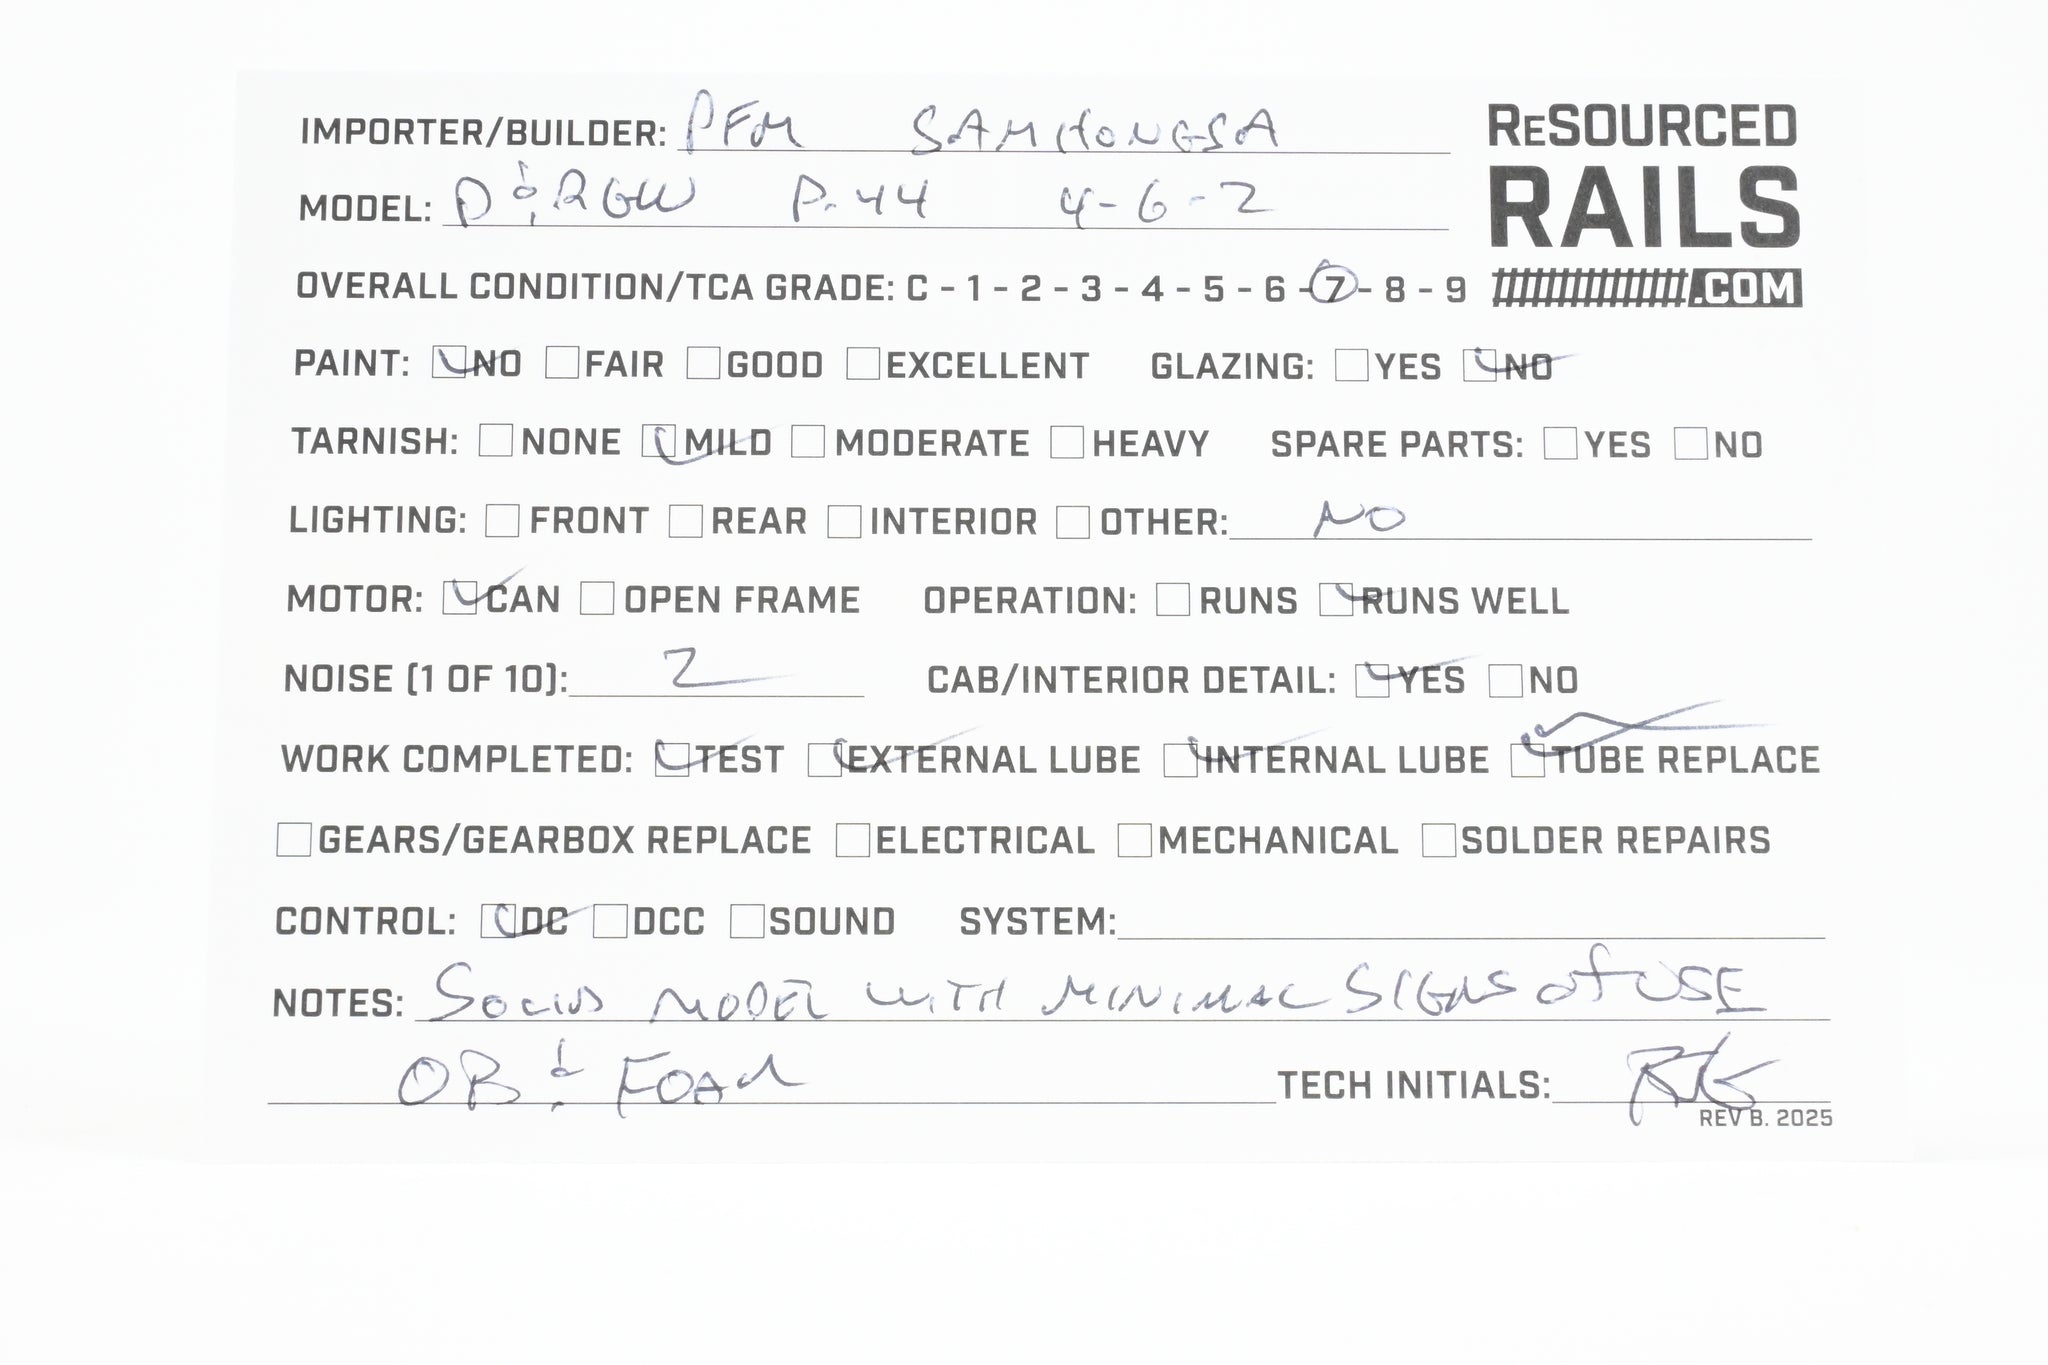 IMPORTER/BUILDER: PFM SAMHONGSA
ReSOURCED
RAILS
.COM
MODEL: D&RGW P-44 4-6-2
OVERALL CONDITION/TCA GRADE: C - 1 - 2 - 3 - 4 - 5 - 6 - 7 - 8 - 9
PAINT: NO FAIR GOOD EXCELLENT GLAZING: YES NO
TARNISH: NONE MILD MODERATE HEAVY SPARE PARTS: YES NO
LIGHTING: FRONT REAR INTERIOR OTHER: NO
MOTOR: CAN OPEN FRAME OPERATION: RUNS RUNS WELL
NOISE (1 OF 10): 2 CAB/INTERIOR DETAIL: YES NO
WORK COMPLETED: TEST EXTERNAL LUBE INTERNAL LUBE TUBE REPLACE
GEARS/GEARBOX REPLACE ELECTRICAL MECHANICAL SOLDER REPAIRS
CONTROL: DC DCC SOUND SYSTEM:
NOTES: SOLID MODEL WITH MINIMAL SIGNS of USE
OB & FOAM TECH INITIALS:
REV B. 2025